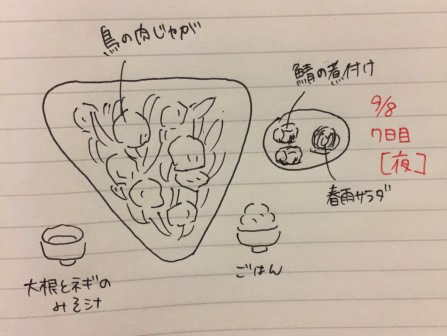 鳥の肉じゃが
鯖の煮付け
9/8
7日目
[夜]
春雨サラダ
大根とネギの
みそ汁
ごはん